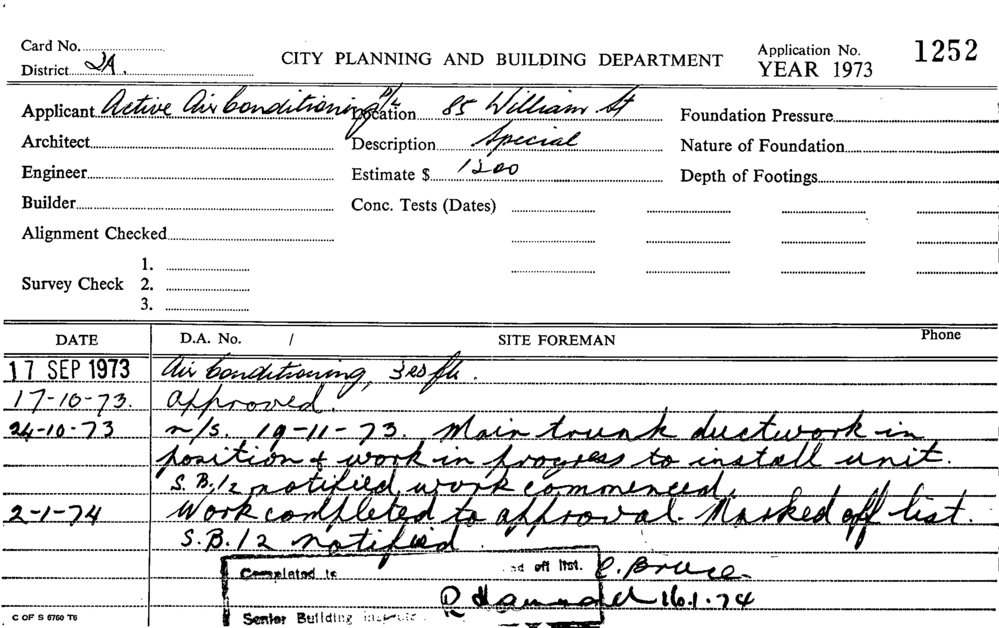 Card No.
CITY PLANNING AND BUILDING DEPARTMENT
Application No. 1252
District 2A.
YEAR 1973
Applicant Active Air Conditioning P/L
Location 85 William St
Foundation Pressure
Architect
Description Special
Nature of Foundation
Engineer
Estimate $ 1200
Depth of Footings
Builder
Conc. Tests (Dates)
Alignment Checked
Survey Check 1.
2.
3.
DATE D.A. No. / SITE FOREMAN Phone
17 SEP 1973 Air Conditioning, 3rd flr.
17-10-73. Approved.
24-10-73 n/s. 19-11-73. Main trunk ductwork in
position & work in progress to install unit.
S.B.12 notified work commenced.
2-1-74 Work completed to approval. Marked off list.
S.B.12 notified.
Completed to ed off list. C. Bruce.
R 16.1.74
Senior Building
C OF S 6760 T6